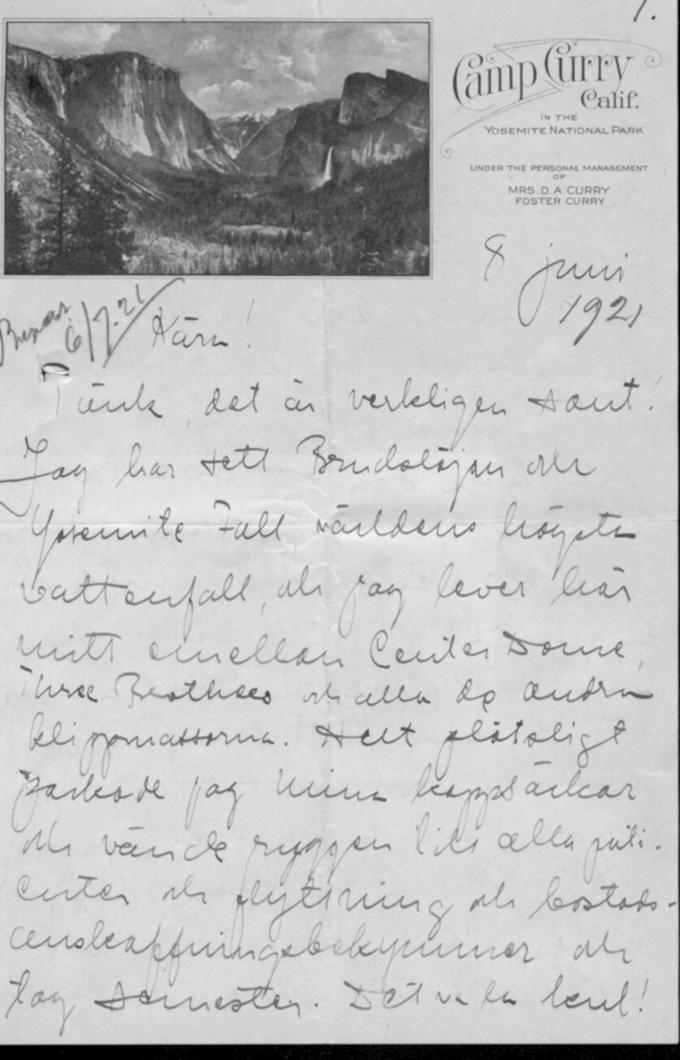 1.
Camp Curry
Calif.
IN THE
YOSEMITE NATIONAL PARK
UNDER THE PERSONAL MANAGEMENT
OF
MRS. D. A. CURRY
FOSTER CURRY
8 juni
1921
6/7. 21
Kära!
Tänk, det är verkligen sant!
Jag har sett Brudslöjan och
Yosemite Fall världens högsta
vattenfall, och jag lever här
mitt emellan Center Dome,
Three Brothers och alla de andra
klippmassorna. Helt plötsligt
packade jag mina kappsäckar
och vände ryggen till alla pati-
enter och flyttning och bostads-
anskaffningsbekymmer och
tog semester. Det va la kul!